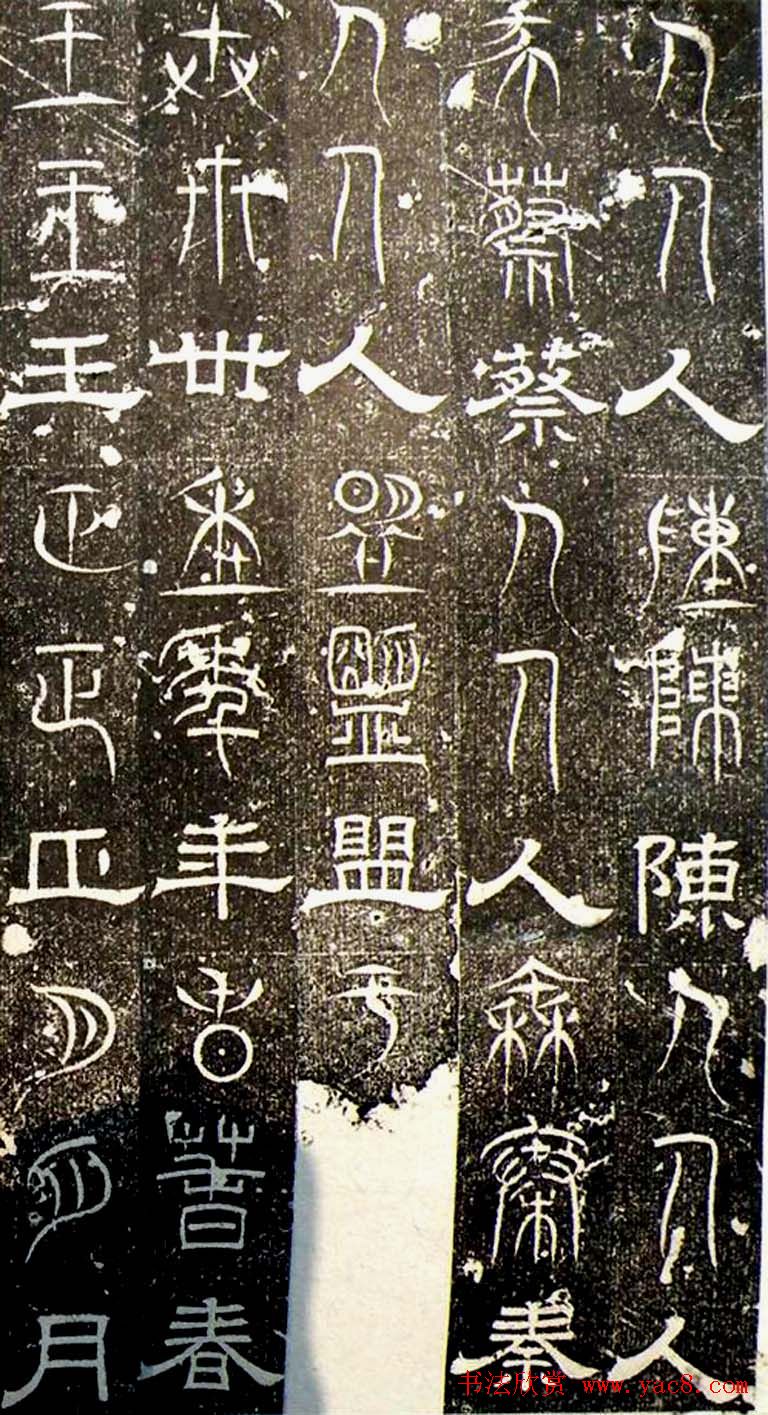 人人人陳陳陳人人人
蔡蔡蔡人人人秦秦秦
人人人盟盟盟于
卅卅卅年年年春春春
王王王正正正月月月
书法欣赏 www.yac8.com